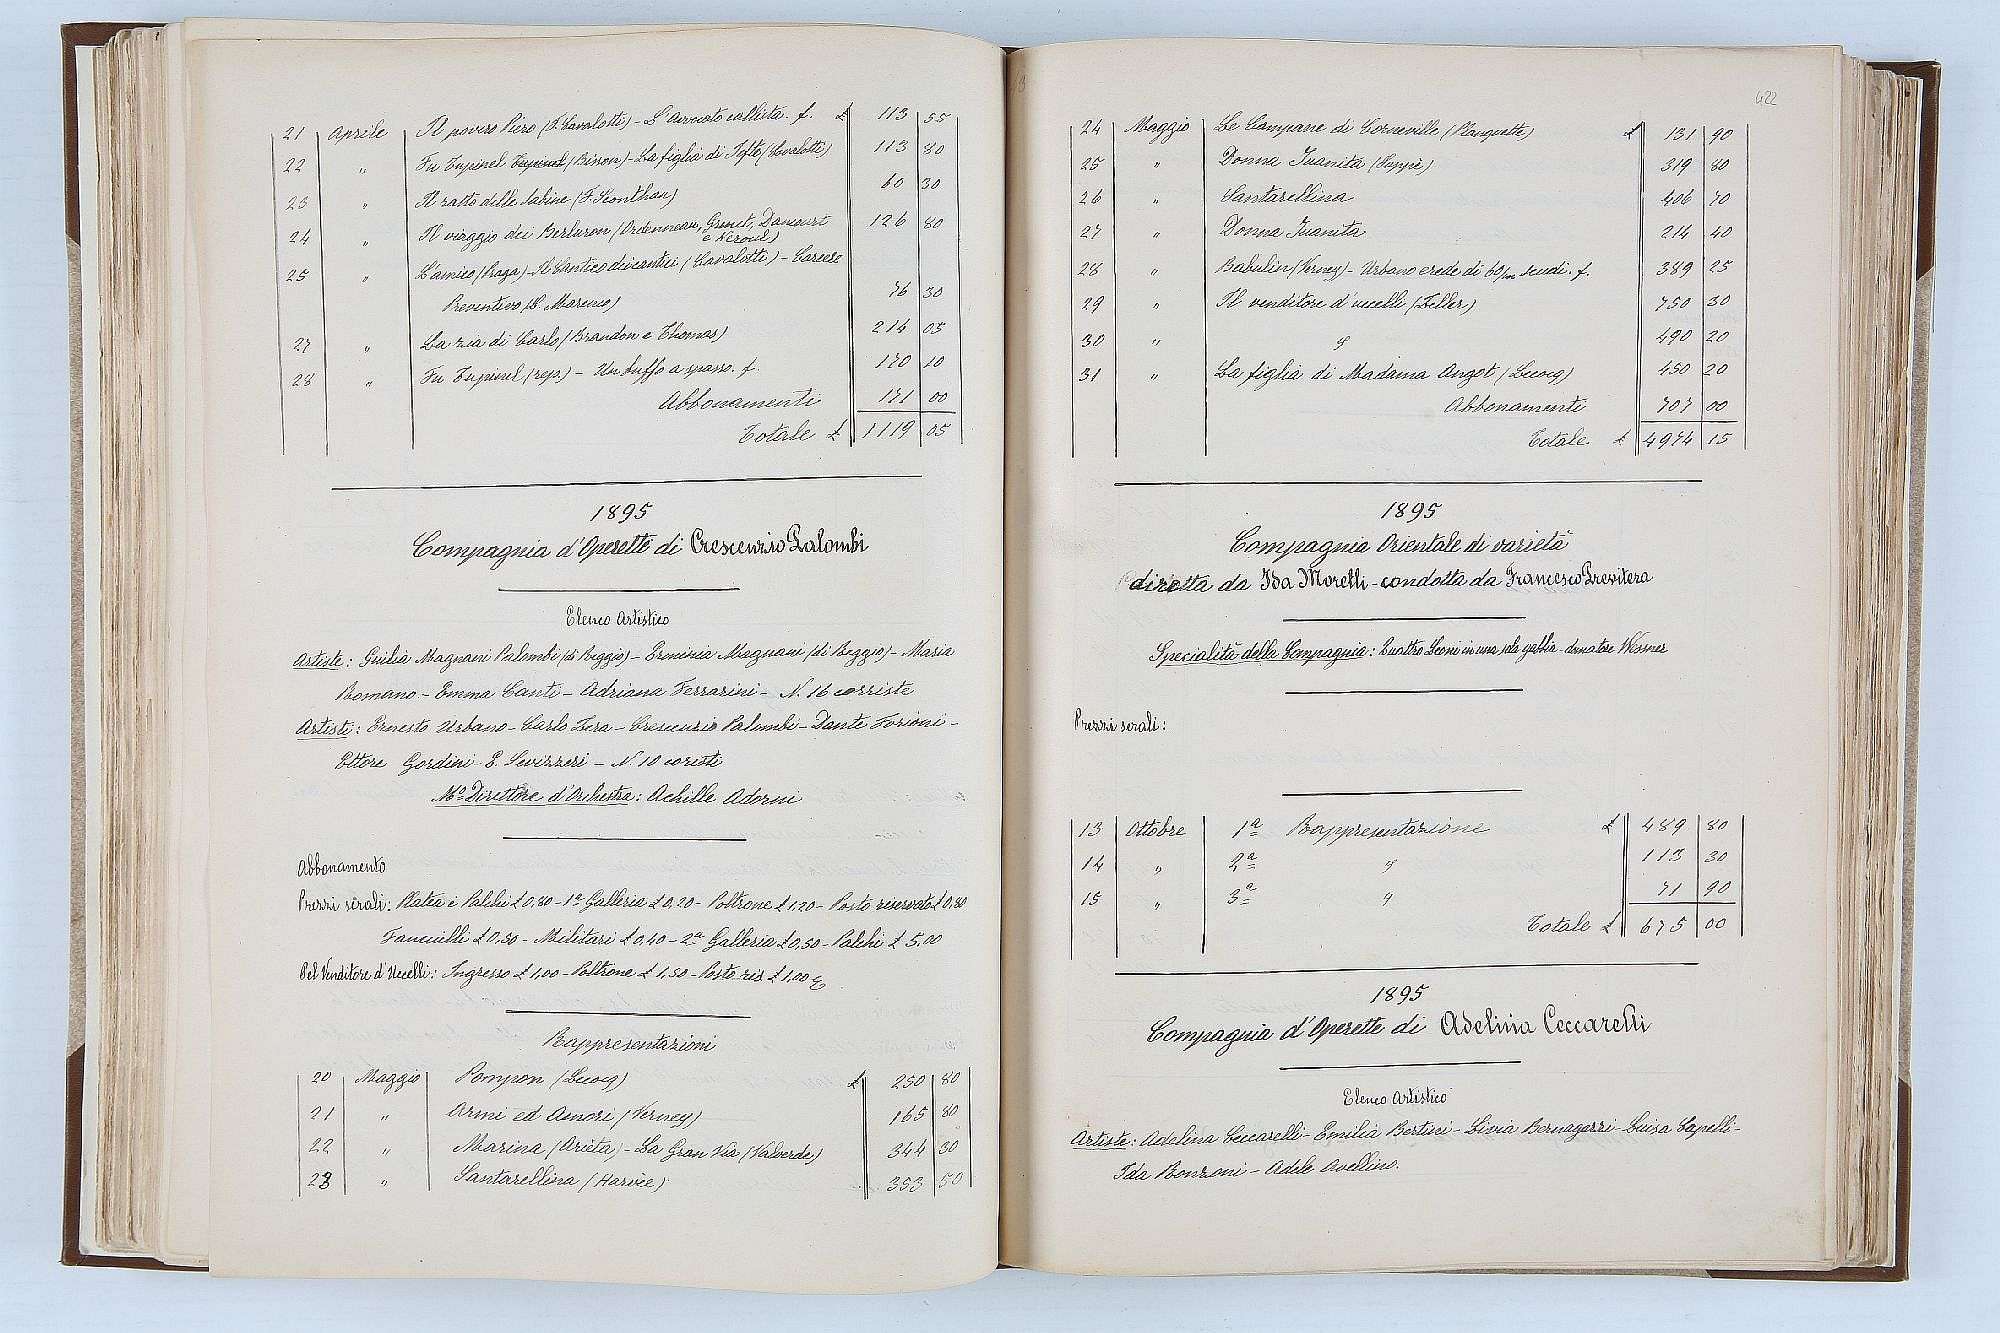 21 Aprile Il povero Piero (F. Cavalotti) - L'Avvocato callista. f. £ 113 55
22 " Fu Tupinel Tupinel (Bisson) - La figlia di Jefte (Cavalotti) 113 80
23 " Il ratto delle Sabine (F. Sconthan) 60 30
24 " Il viaggio dei Berluron (Ordenneau, Grenet, Dancourt 126 80
e Keroul)
25 " L'amico (Praga) - Il Cantico dei cantici (Cavalotti) - Carcere
Preventivo (L. Marenco) 76 30
27 " La zia di Carlo (Brandon e Thomas) 214 05
28 " Fu Tupinel (rep.) - Un buffo a spasso. f. 170 10
Abbonamenti 171 00
Totale £ 1119 05
1895
Compagnia d'Operette di Crescenzio Palombi
Elenco Artistico
Artiste: Giulia Magnani Palombi (di Reggio) - Erminia Magnani (di Reggio) - Maria
Romano - Emma Canti - Adriana Ferrarini - N. 16 corriste
Artisti: Ernesto Urbano - Carlo Zera - Crescenzio Palombi - Dante Forconi -
Ettore Gordini - E. Svizzeri - N. 10 coristi
Mo. Direttore d'Orchestra: Achille Adorni
Abbonamento
Prezzi serali: Platea e Palchi £ 0,80 - 1a Galleria £ 0,20 - Poltrone £ 1,20 - Posto riservato £ 0,80
Fanciulli £ 0,50 - Militari £ 0,40 - 2a Galleria £ 0,50 - Palchi £ 5,00
Pel Venditore d'Uccelli: Ingresso £ 1,00 - Poltrone £ 1,50 - Posto ris £ 1,00
Rappresentazioni
20 Maggio Pompon (Lecocq) £ 250 80
21 " Armi ed Amori (Verney) 165 80
22 " Marina (Arieta) - La Gran Via (Valverde) 344 30
23 " Santarellina (Harvie) 353 50
422
24 Maggio Le Campane di Corneville (Planquette) £ 131 90
25 " Donna Juanita (Suppè) 319 80
26 " Santarellina 406 70
27 " Donna Juanita 214 40
28 " Babulin (Verney) - Urbano erede di 60/m scudi. f. 389 25
29 " Il venditore d'uccelli (Zeller) 750 30
30 " " 490 20
31 " La figlia di Madama Angot (Lecocq) 450 20
Abbonamenti 707 00
Totale £ 4974 15
1895
Compagnia Orientale di varietà
diretta da Ida Morelli - condotta da Francesco Previtera
Specialità della Compagnia: Quattro Leoni in una sola gabbia - domatore Wismer
Prezzi serali:
13 Ottobre 1a Rappresentazione £ 489 80
14 " 2a " 113 30
15 " 3a " 71 90
Totale £ 675 00
1895
Compagnia d'Operette di Adelina Ceccarelli
Elenco Artistico
Artiste: Adelina Ceccarelli - Emilia Bertini - Livia Bernagozzi - Luisa Capelli -
Ida Bonzoni - Adele Avellino.